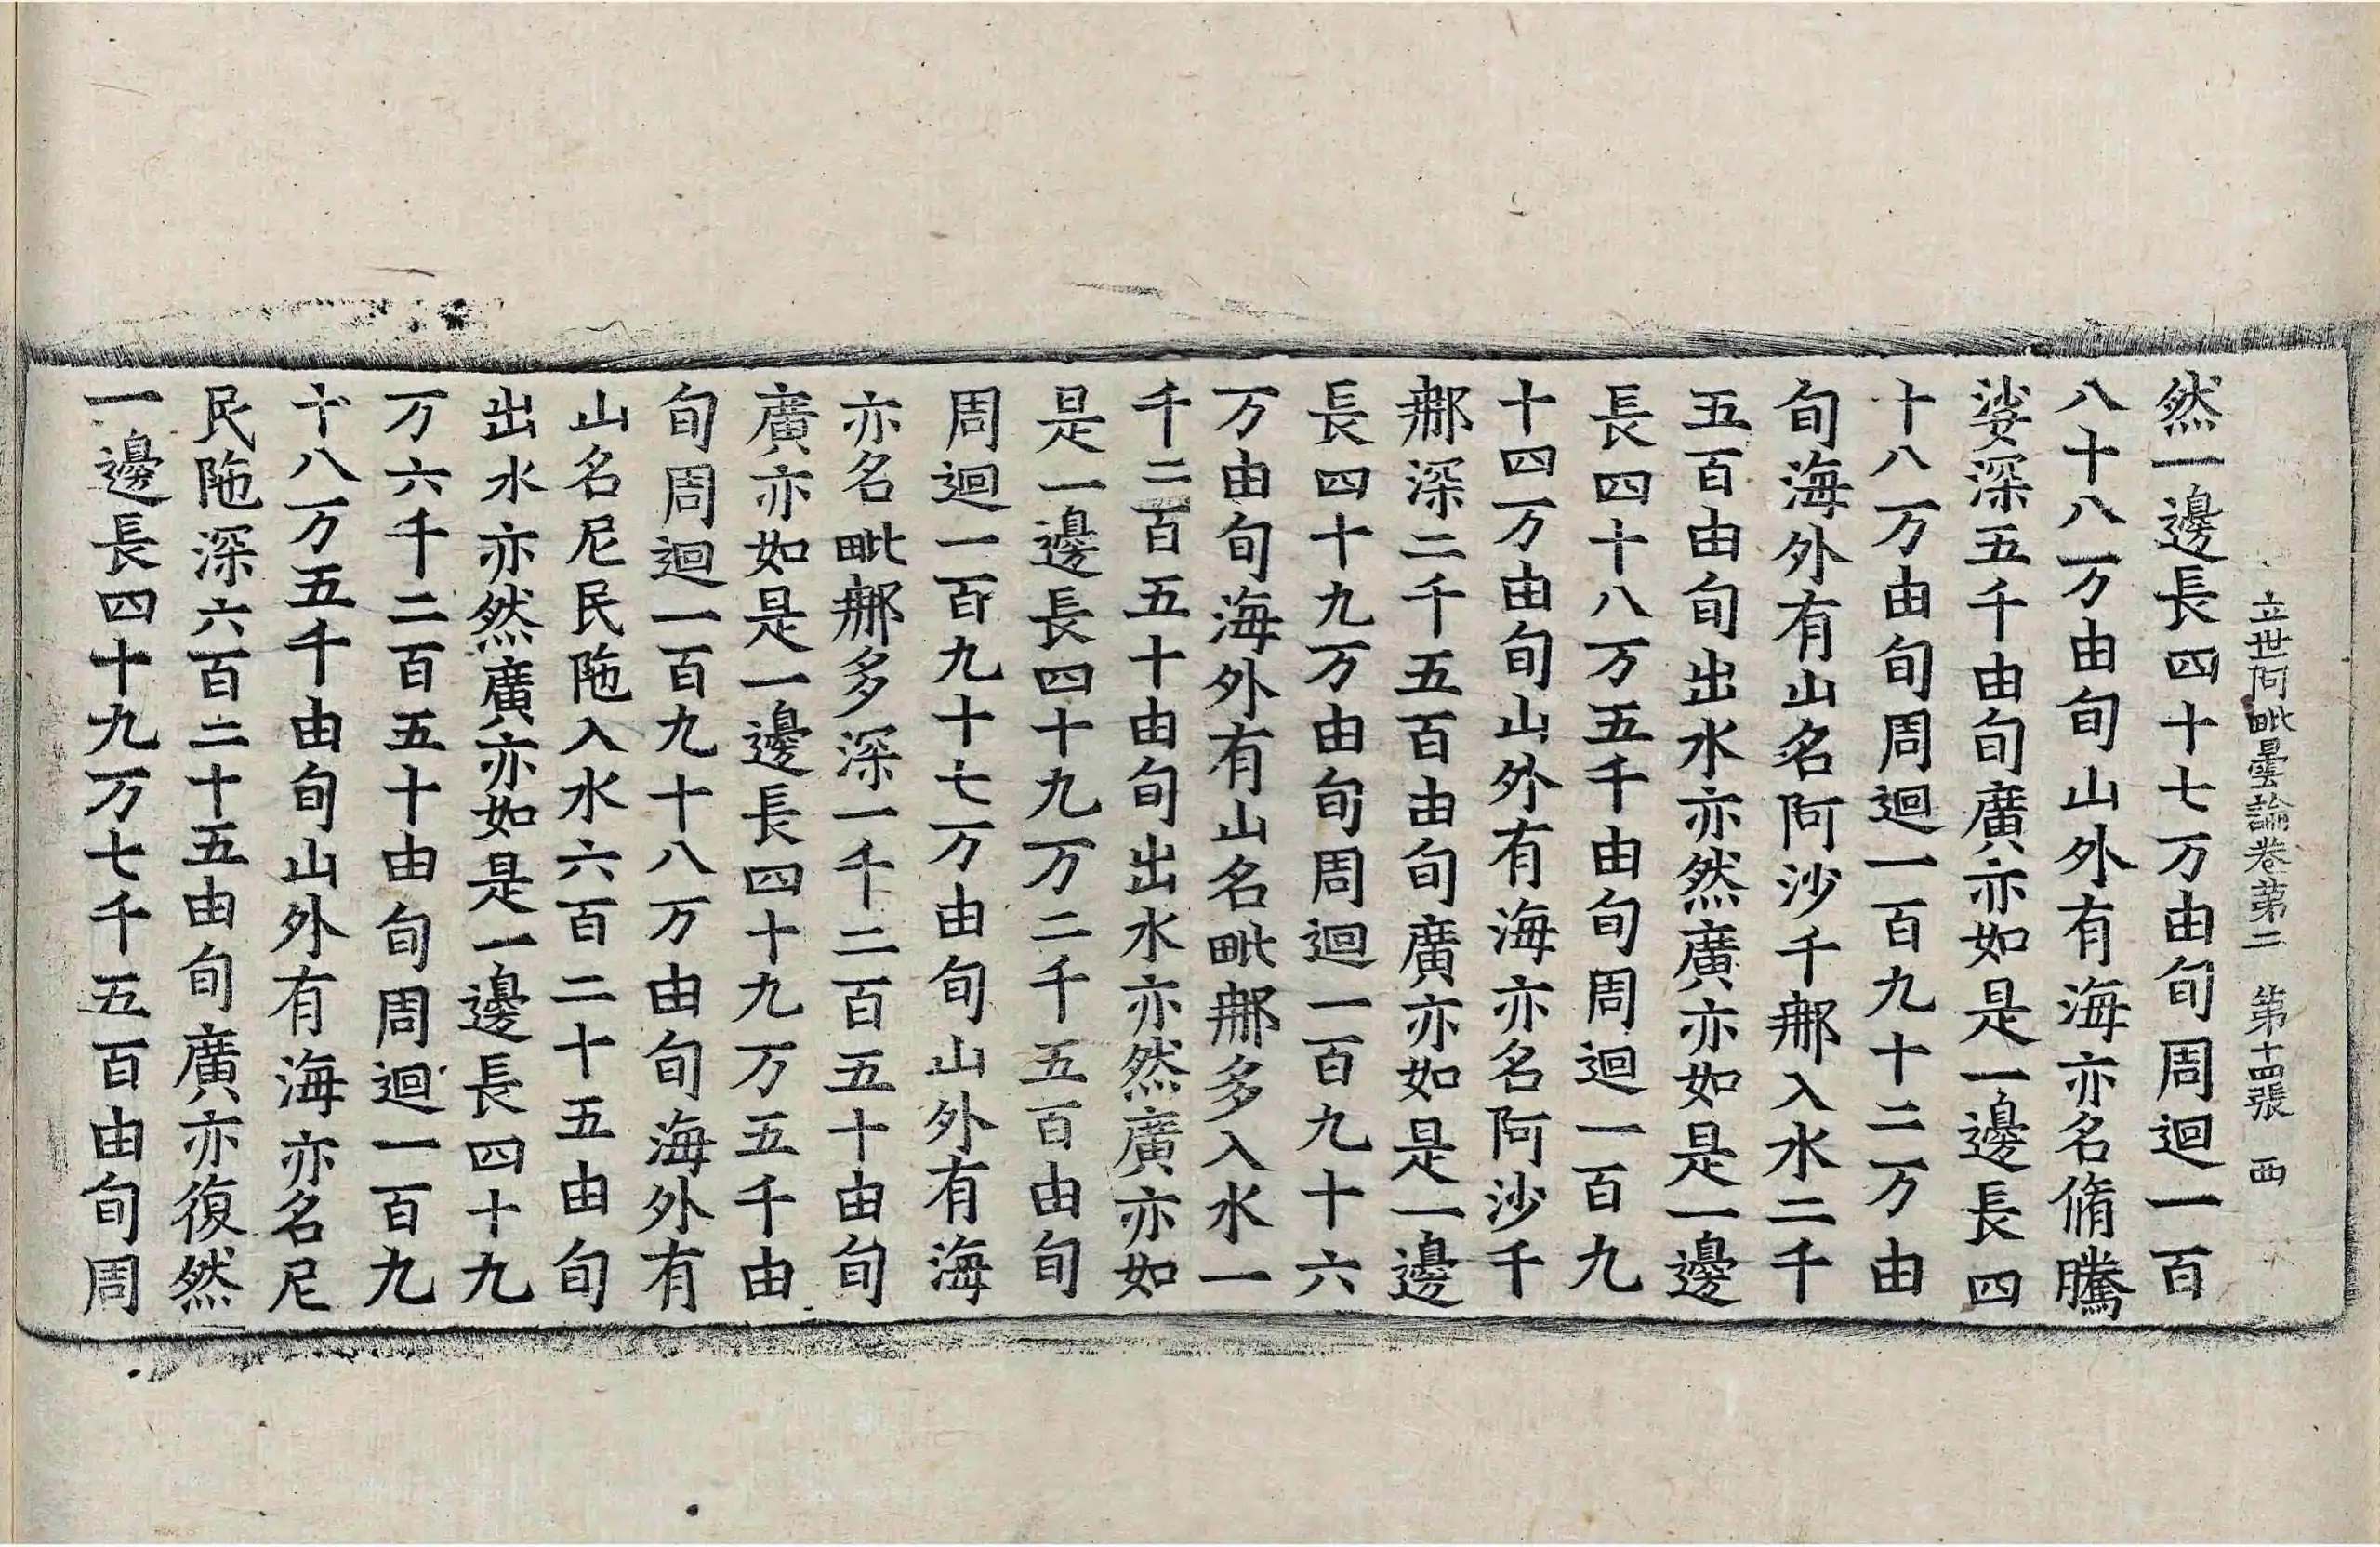 立世阿毗曇論卷第二 第十四張 西
然一邊長四十七万由旬周迴一百
八十八万由旬山外有海亦名脩騰
娑深五千由旬廣亦如是一邊長四
十八万由旬周迴一百九十二万由
旬海外有山名阿沙千郍入水二千
五百由旬出水亦然廣亦如是一邊
長四十八万五千由旬周迴一百九
十四万由旬山外有海亦名阿沙千
郍深二千五百由旬廣亦如是一邊
長四十九万由旬周迴一百九十六
万由旬海外有山名毗郍多入水一
千二百五十由旬出水亦然廣亦如
是一邊長四十九万二千五百由旬
周迴一百九十七万由旬山外有海
亦名毗郍多深一千二百五十由旬
廣亦如是一邊長四十九万五千由
旬周迴一百九十八万由旬海外有
山名尼民陁入水六百二十五由旬
出水亦然廣亦如是一邊長四十九
万六千二百五十由旬周迴一百九
十八万五千由旬山外有海亦名尼
民陁深六百二十五由旬廣亦復然
一邊長四十九万七千五百由旬周